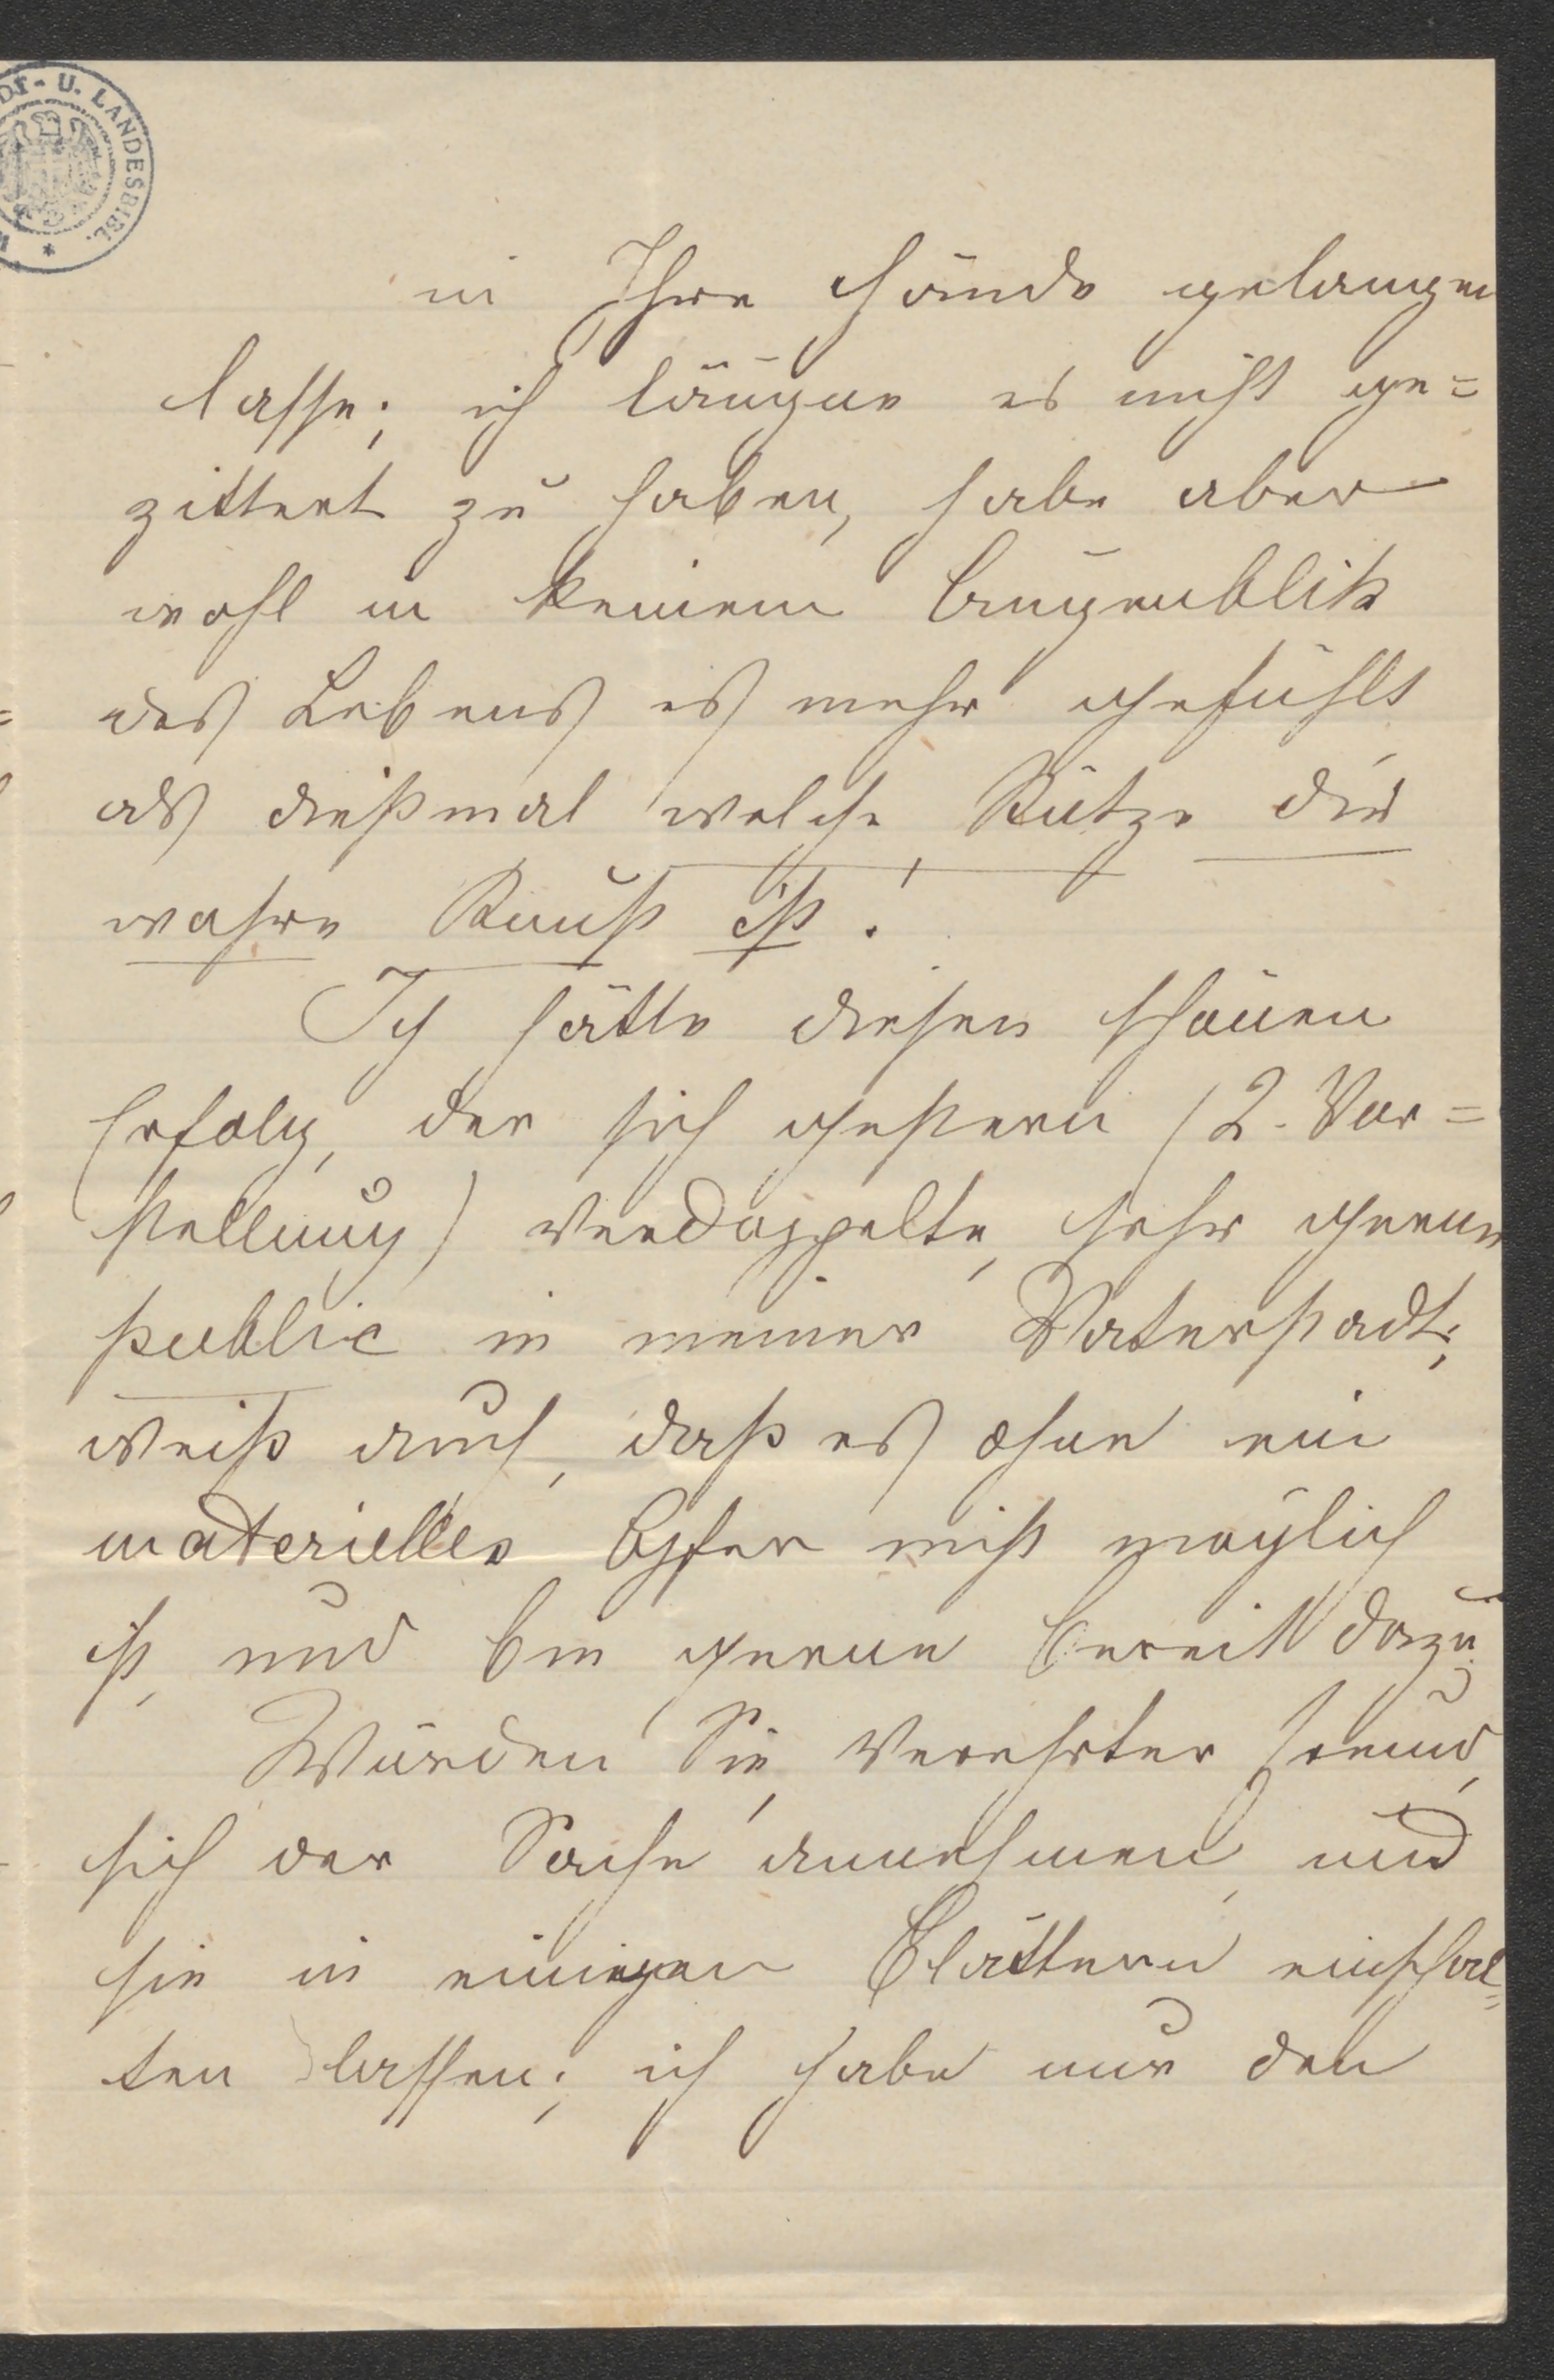 DT- U. LANDESBIBL.
in Ihre Hände gelangen
lasse; ich läugne es nicht ge=
zittert zu haben, habe aber
wohl in keinem Augenblik
des Lebens es mehr gefühlt
als dießmal welche Stütze die
wahre Kunst ist!
Ich hätte diesen schönen
Erfolg, der sich gestern (2. Vor=
stellung) verdoppelte, sehr gerne
public in meiner Vaterstadt;
weiß auch, daß es ohne ein
materielles Opfer nicht möglich
ist, und bin gerne bereit dazu.
Würden Sie, verehrter Freund,
sich der Sache annehmen, und
sie in einigen Blättern einschal=
ten lassen; ich habe nur den